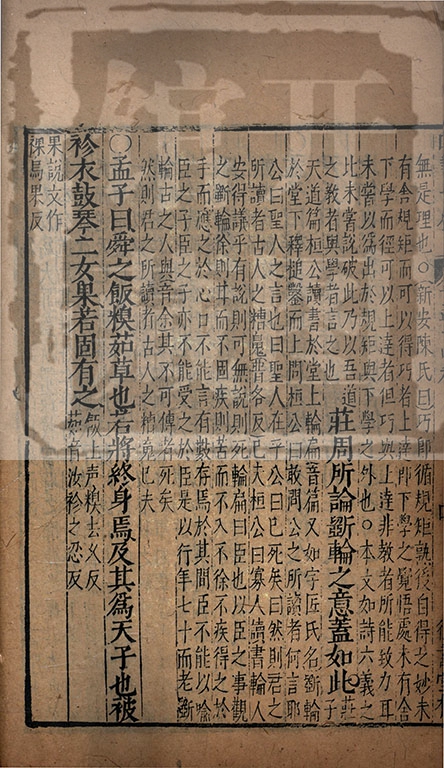 無是理也○新安陳氏曰巧即循規矩熟後自得之妙未
有舍規矩而可以得巧者上達即下學之覺悟處未有舍
下學而徑可以上達者但巧與上達非教者所能致力耳
未嘗以為出於規矩與下學之外也○本文如詩六義之
比未嘗說破此乃以吾道
之教者與學者言之也
莊周所論斲輪之意蓋如此莊
天道篇桓公讀書於堂上輪扁音篇又如字匠氏名斲輪
於堂下釋槌鑿而上問桓公曰敢問公之所讀者何言耶
公曰聖人之言也曰聖人在乎公曰已死矣曰然則君之
所讀者古人之糟魄普各反已夫桓公曰寡人讀書輪人
安得議乎有說則可無說則死輪扁曰臣也以臣之事觀
之斲輪徐則甘而不固疾則苦而不入不徐不疾得之於
手而應之於心口不能言有數存焉於其間臣不能以喻
臣之子臣之子亦不能受之於臣是以行年七十而老斲
輪古之人與音余其不可傳者死矣
然則君之所讀者古人之糟魄已夫
○孟子曰舜之飯糗茹草也若將終身焉及其為天子也被
袗衣鼓琴二女果若固有之
飯上声糗去久反
茹音汝袗之忍反
果說文作
婐烏果反